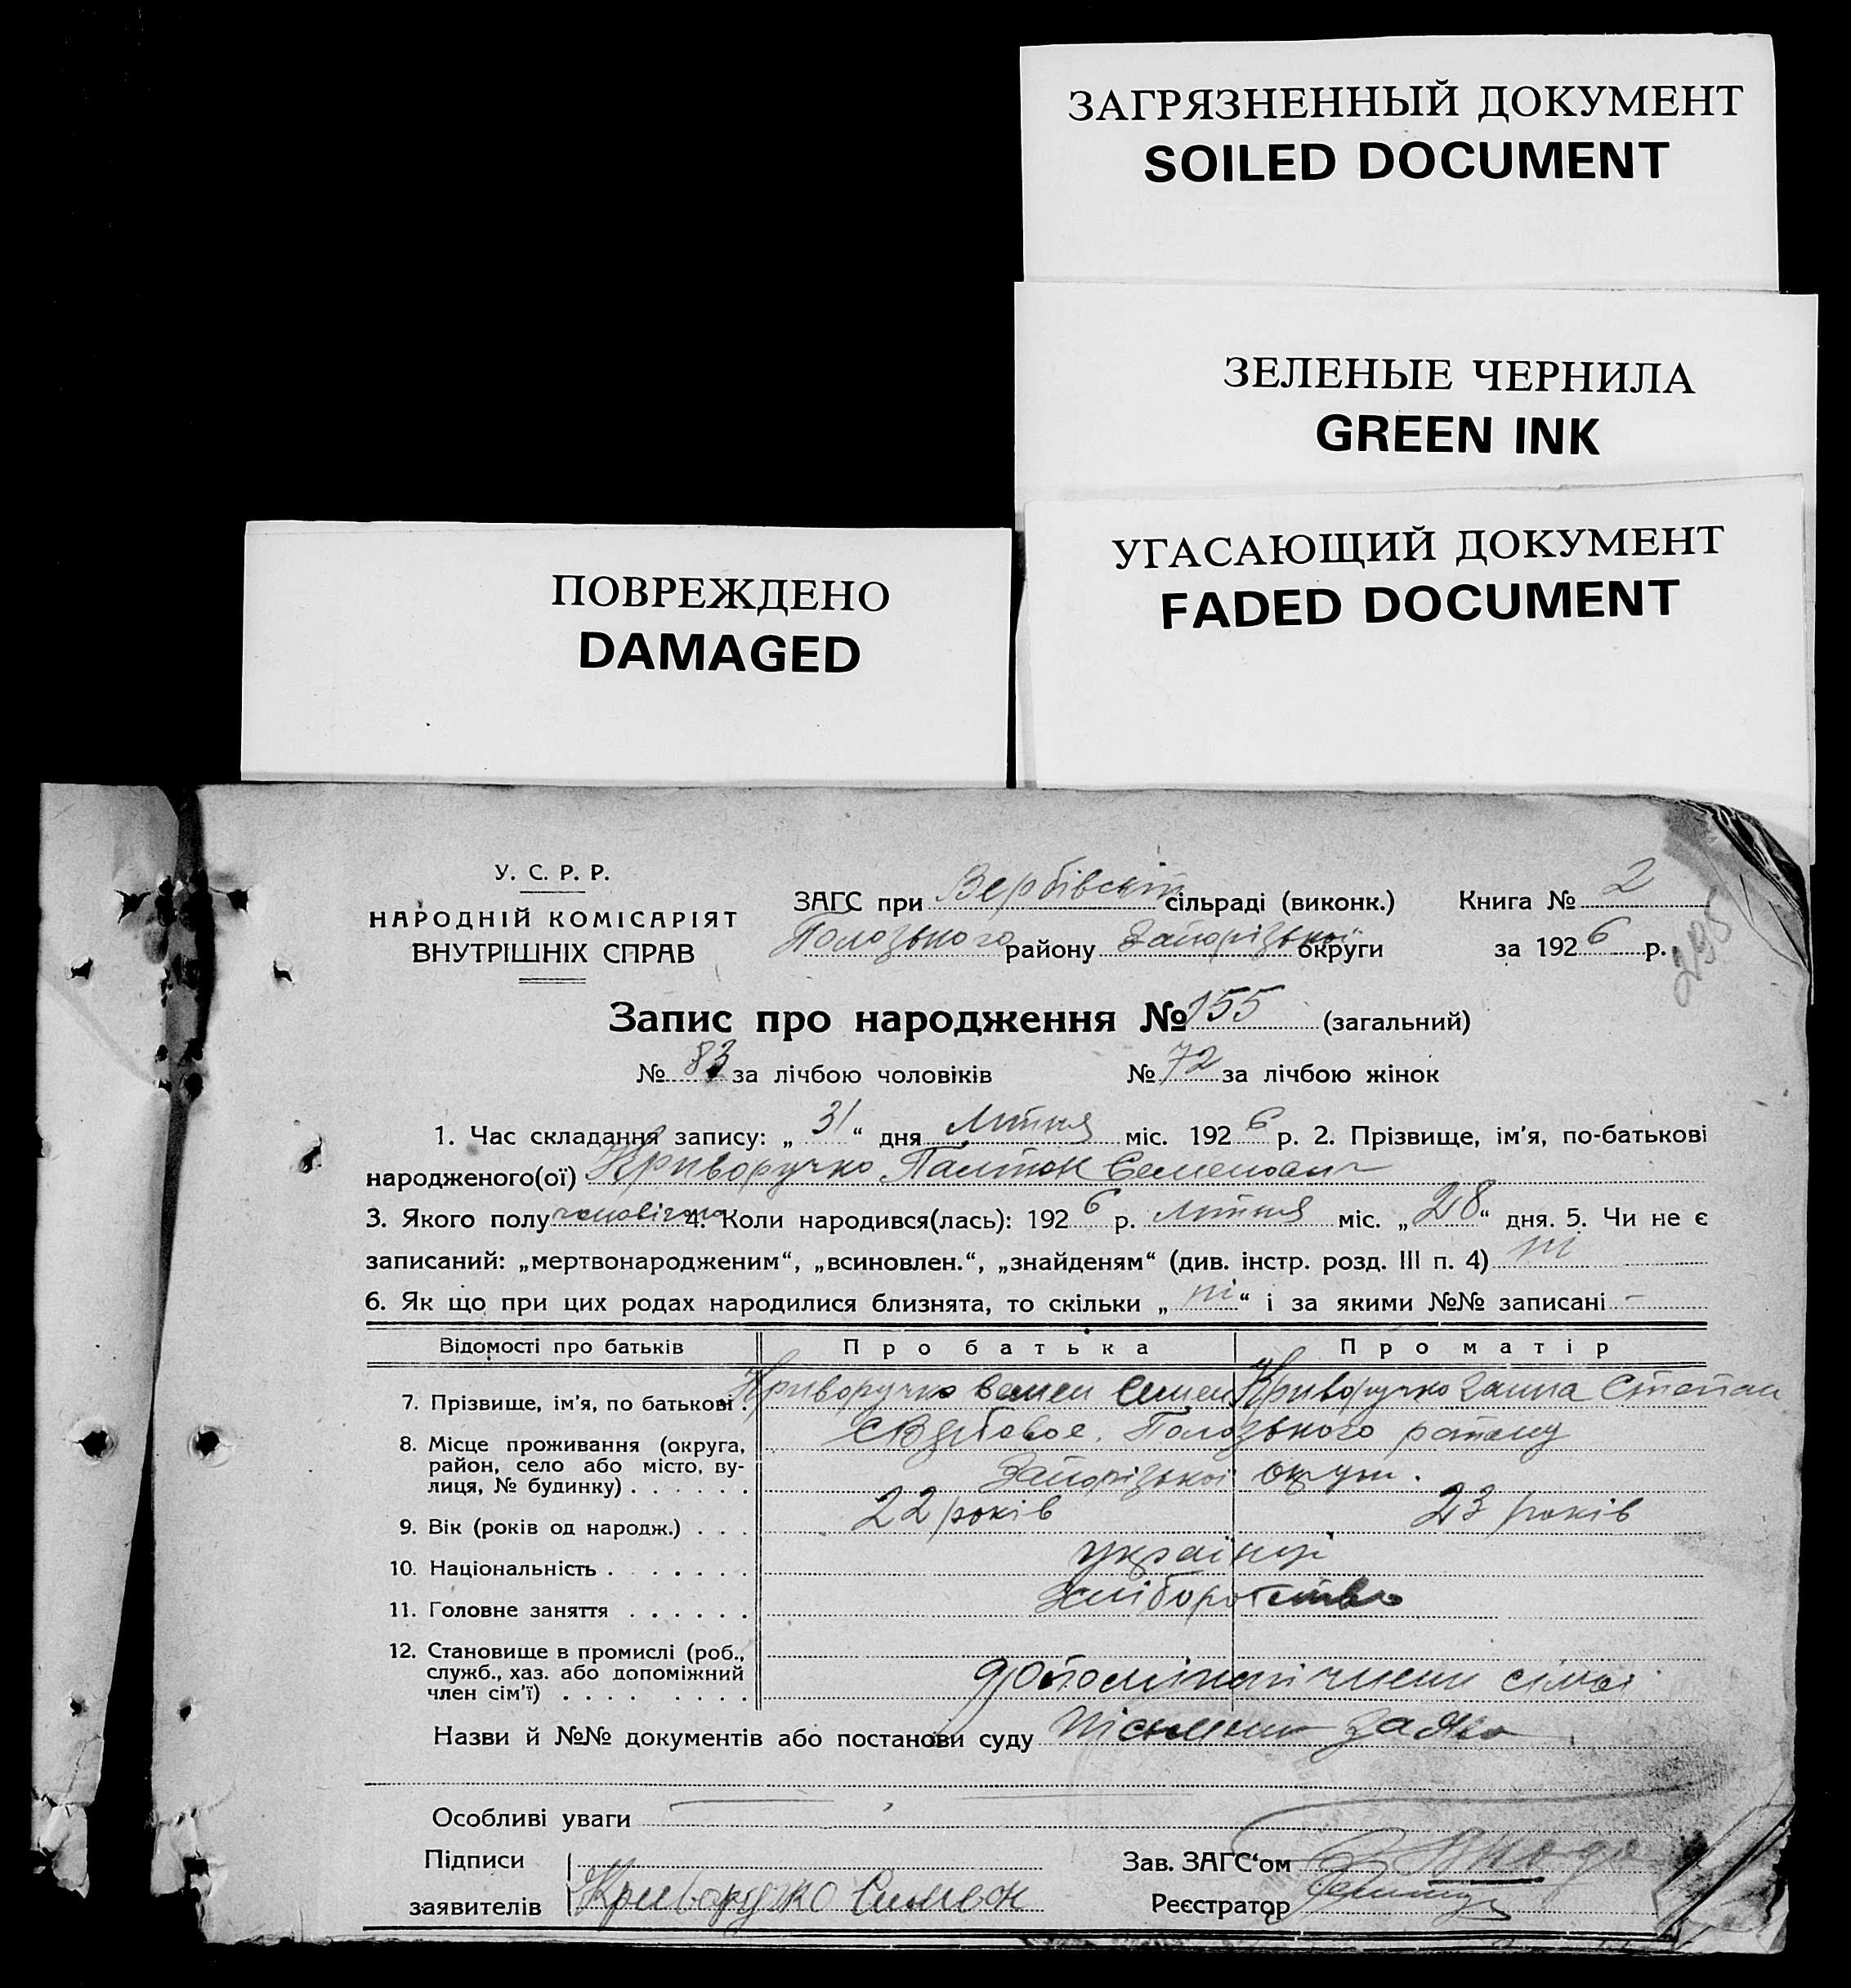 ЗАГРЯЗНЕННЫЙ ДОКУМЕНТ
SOILED DOCUMENT
ЗЕЛЕНЫЕ ЧЕРНИЛА
GREEN INK
УГАСАЮЩИЙ ДОКУМЕНТ
FADED DOCUMENT
ПОВРЕЖДЕНО
DAMAGED
У. С. Р. Р.
НАРОДНІЙ КОМІСАРІЯТ
ВНУТРІШНІХ СПРАВ
ЗАГС при Вербівській сільраді (виконк.) Книга № 2
Пологського району Запорізької округи за 1926 р.
295
Запис про народження № 155 (загальний)
№ 83 за лічбою чоловіків № 72 за лічбою жінок
1. Час складання запису: „31“ дня Липня міс. 1926 р. 2. Прізвище, ім'я, по-батькові
народженого(ої) Криворучко Семенович
3. Якого полу чоловічого 4. Коли народився(лась): 1926 р. Липня міс. „28“ дня. 5. Чи не є
записаний: „мертвонародженим“, „всиновлен.“, „знайденям“ (див. інстр. розд. III п. 4) ні
6. Як що при цих родах народилися близнята, то скільки „ні“ і за якими №№ записані -
Відомості про батьків Про батька Про матір
7. Прізвище, ім'я, по батькові . Криворучко Семен Семен Криворучко Ганна Степан
8. Місце проживання (округа, район, село або місто, вулиця, № будинку) . . . . . . С Вербовое. району
Запорізької округи.
9. Вік (років од народж.) . . . 22 років 23 років
10. Національність . . . . . . українці
11. Головне заняття . . . . . . Хліборобство
12. Становище в промислі (роб.,
служб., хаз. або допоміжний
член сім'ї) . . . . . . . . допоміжні члени сімьі
Назви й №№ документів або постанови суду заява
Особливі уваги
Підписи Зав. ЗАГС'ом
заявителів Криворучко Симеон Реєстратор